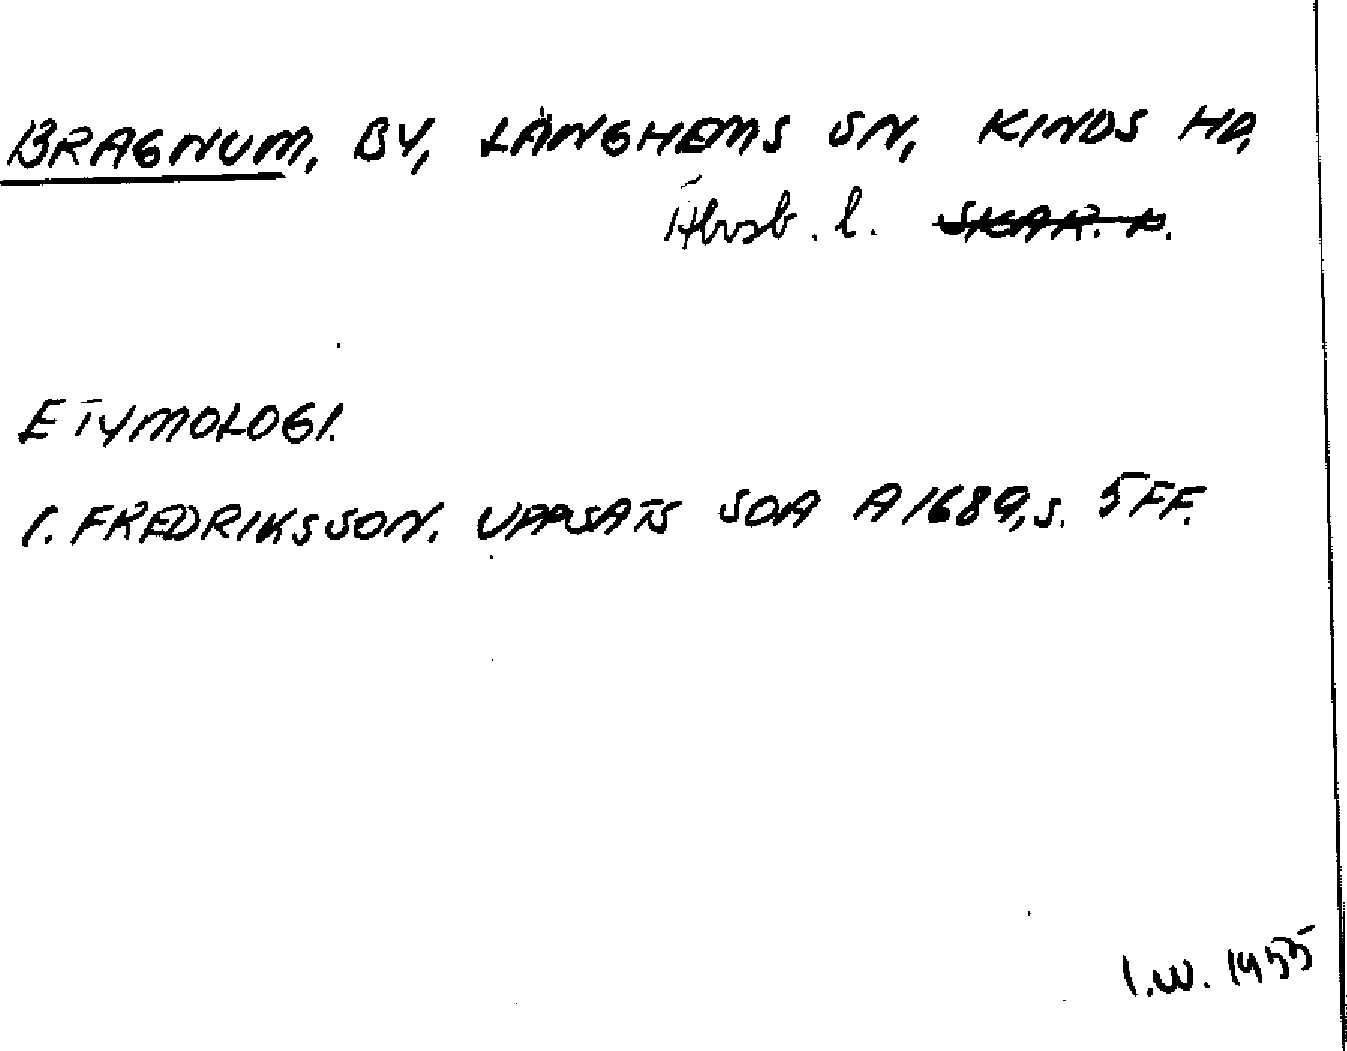 BRAGNUM, BY, LÄNGHEMS SN, KINDS HD,
Älvsb. l. SKAR. L.
ETYMOLOGI.
I. FREDRIKSSON. UPPSATS SOA A 1689, S. 5 FF.
I.W. 1955